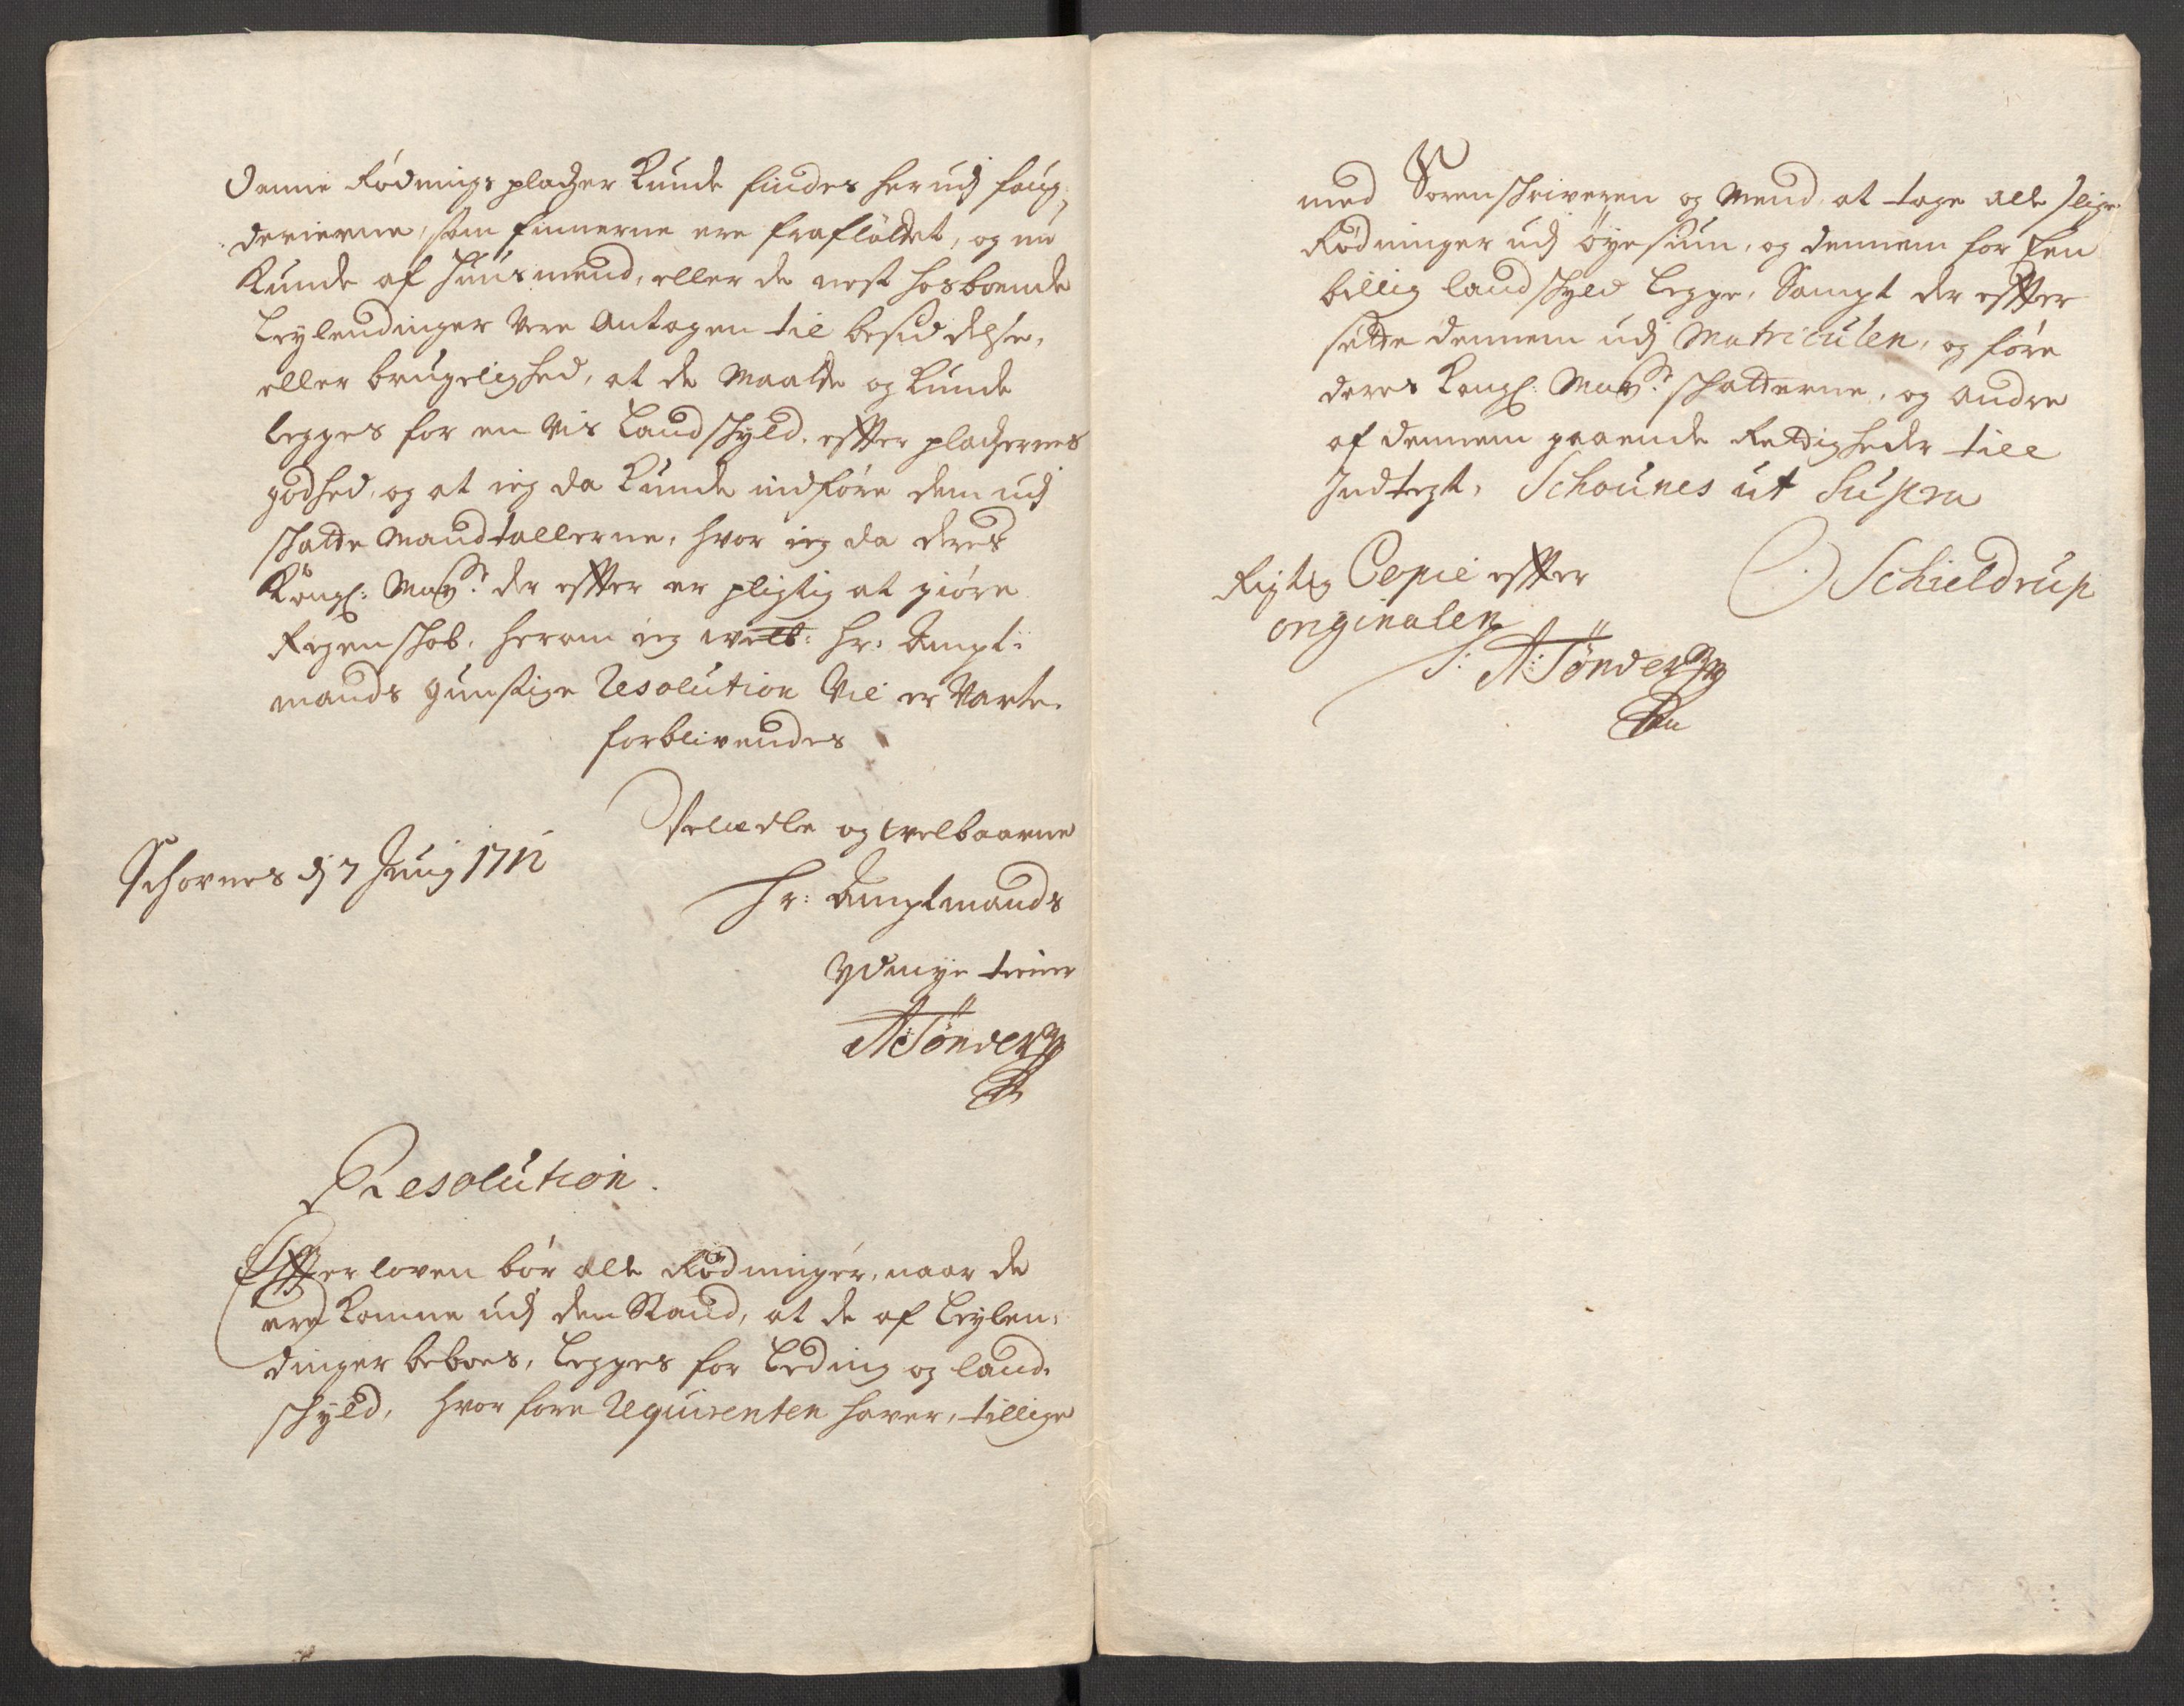 denne Rødnings pladzer Kunde findes her udj foug,
derierne, som finnerne ere fraflöttet, og nu
Kunde af Huusmend, eller de nest hosboende
Leylendinger Vere Antagen til besiddelse,
eller brugelighed, at de Maatte og Kunde
legges for en Vis Landschyld, effter pladzernes
godhed, og at ieg da Kunde indføre dem udj
schatte Mandtallerne, hvor ieg da deres
Kongl: May:st der effter er pligtig at giøre
Regenschab, herom ieg welb: Hr: Ampt:
mands gunstige Resolution Vil er Varte.
forblivendes
Velædle og welbaarne
Schovnes dj 7 Junij 1712
Hr: Amptmands
ydmyge tiener
A: Tönder
Resolution.
Effter loven bør alle Rödninger, naar de
ere Komne udj den Stand, at de af Leylen,
dinger beboes, legges for Leding og land,
schyld, hvor fore Requirenten haver, tillige
med Sorenschriveren og Mend, at tage alle slige
Rödninger udj öyesiun, og dennem for Een
billig landschyld legge, Sampt der effter
sette dennem udj Matriculen, og føre
deres Kongl: May:st schatterne, og andre
af dennem gaaende Rettigheder till
Indtegt, Schounes ut Supra
Schieldrup
Rigtig Copie effter
originalen
T: A: Tönder